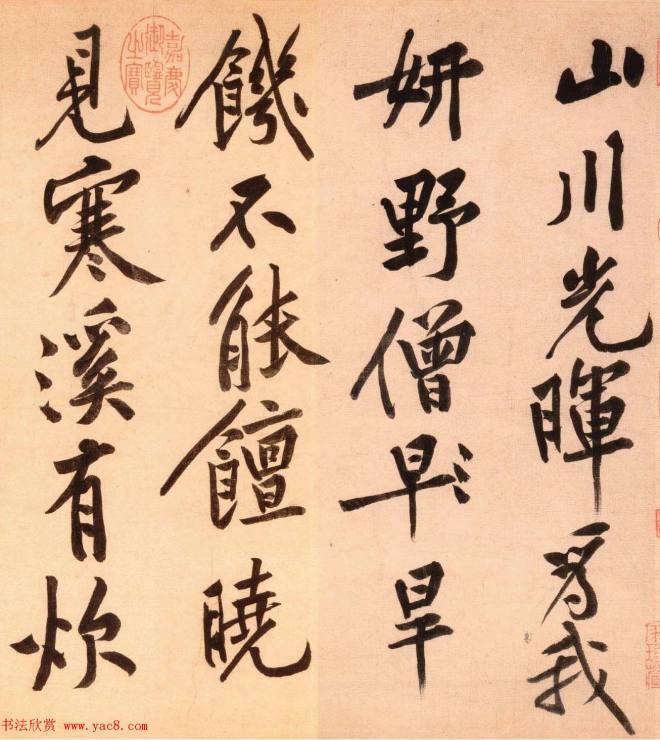 山川光暉為我
妍野僧早旱
饑不能饘曉
見寒溪有炊
嘉慶御覽之寶
书法欣赏 www.yac8.com